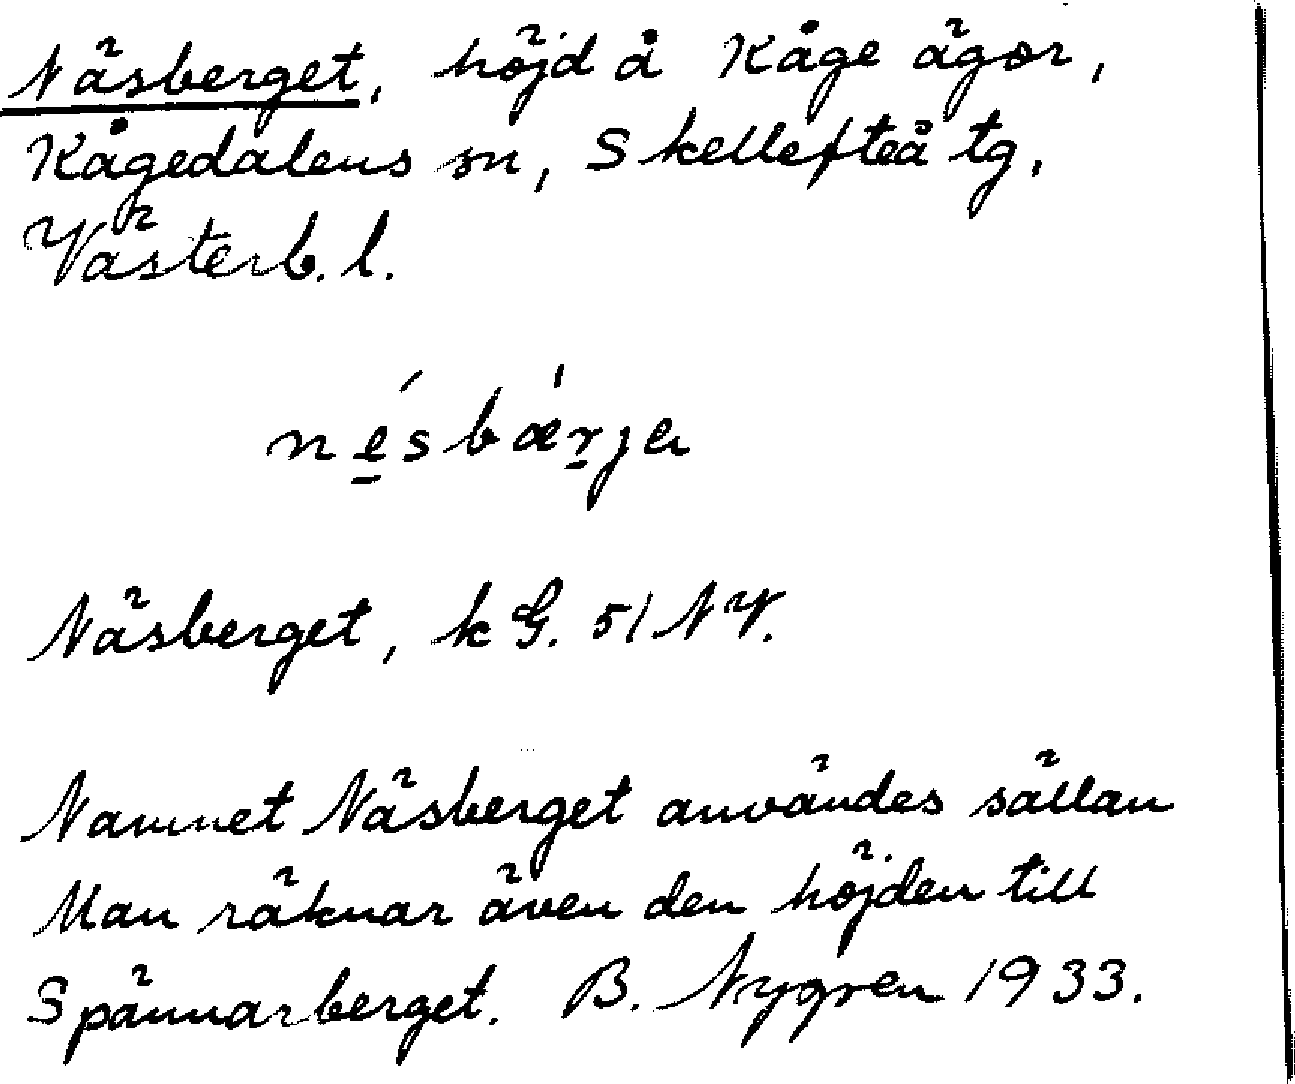 Näsberget, höjd å Kåge ägor,
Kågedalens sn, Skellefteå tg,
Västerb. l.
nésbæ̍rja
Näsberget, kG. 51 NV.
Namnet Näsberget användes sällan
Man räknar även den höjden till
Spännarberget. B. Nygren 1933.